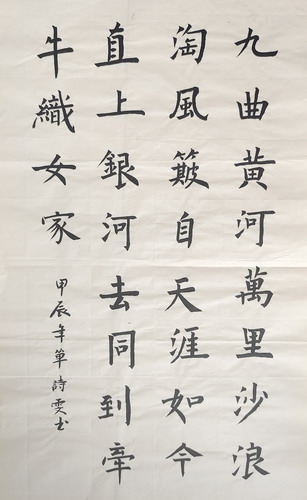 九曲黄河萬里沙浪
淘風簸自天涯如今
直上銀河去同到牽
牛織女家
甲辰年單詩雯书